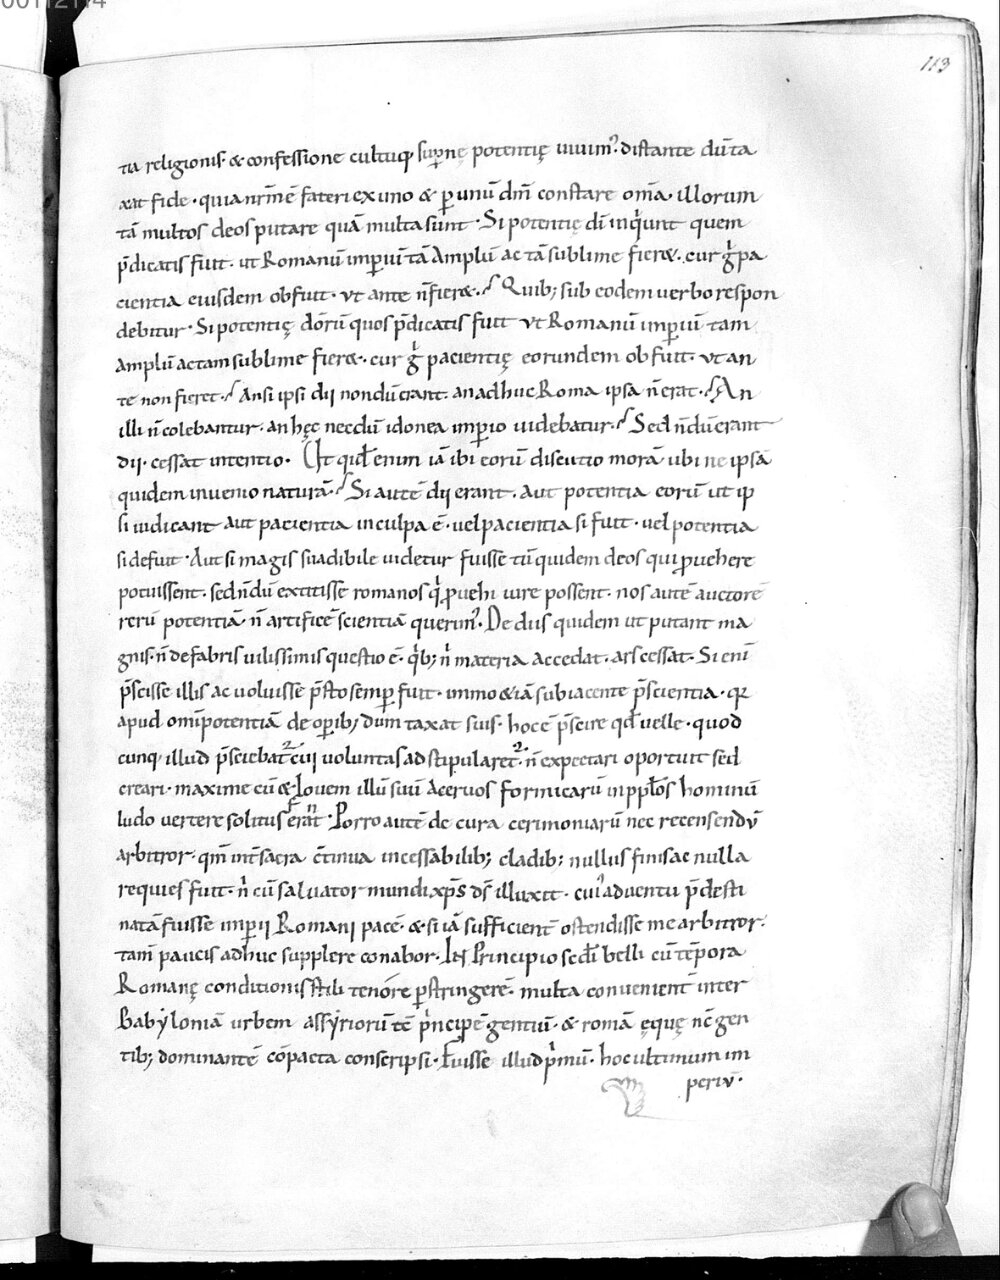 00112114
113
tia religionis & confessione cultuq; sup̄nę potentię uiuim᷒. distante dum̄ta
xat fide · quia nr̄m ē fateri ex uno & p̱ unū dm̄ constare om̄a · illorum
tā multos deos putare quā multa sunt · Si potentię di̅ inq̇unt quem
p̄dicatis fuit · ut Romanū imp̱iū tā Amplū ac tā sublime fier& · cur g̊ pa
cientia eiusdem obfuit · vt ante n̄ fier& · Quib; sub eodem uerbo respon
debitur · Si potentię dōrū quos p̄dicatis fuit vt Romanū imp̱iū tam
Amplū ac tam sublime fier& · cur g̊ pacientię eorundem obfuit · vt an
te non fieret · An si ipsi dij nondū erant · an adhuc Roma ipsa n̄ erat · An
illi n̄ colebantur · an hęc necdū idonea imp̱io uidebatur · Sed n̄dū erant
dij · cessat intentio · Ut quid enim iā ibi eorū discutio morā ubi ne ipsā
quidem inuenio naturā · Si autē dij erant · Aut potentia eorū ut ip
si iudicant aut pacientia in culpa ē · uel pacientia si fuit · uel potentia
si defuit · Aut si magis suadibile uidetur fuisse tū quidem deos qui p̱uehere
potuissent · sed n̄dū extitisse romanos q̇ p̱uehi iure possent · nos autē auctorē
rerū potentiā · n̄ artificē scientiā querim᷒ · De diis quidem ut putant ma
gnis · n̄ de fabris uilissimis questio ē · q̇b; n̊ materia accedat · ars cessat · Si eni̅
p̄scisse illis ac uoluisse p̄sto semp̱ fuit · immo & iā subiacente p̄scientia · qꝛ
apud om̄ipotentiā de op̱ib; dum taxat suis · hoc ē p̄scire qd̄ uelle · quod
cunq; illud p̄sciebat᷑ cui uoluntas adstipularet᷑ · n̄ expectari oportuit sed
creari · maxime cū & Iouem illū suū Acervos formicarū in pp̄los hominū
ludo uertere solitus erant · Porro autē de cura cerimoniarū nec recensendū
arbitror · qm̄ int̄ sacra c̄tinua incessabilib; cladib; nullus finis ac nulla
requies fuit · n̊ cū saluator mundi xp̄s d̄s illuxit · cui᷒ aduentu p̄desti
natā fuisse imp̱ij Romani pacē · & si iā sufficient̄ ostendisse me arbitror ·
tam̄ paucis adhuc supplere conabor · In Principio sedi̅ belli cū tēpora
Romanę conditionis stili tenōre p̱stringerē · multa conuenient̄ inter
Babẏloniā urbem assẏriorū tc̄ p̊ncipē gentiū · & romā ęquę nc̄ gen
tib; dominantē cōpacta conscripsi · Fuisse illud p̊mū · hoc ultimum im
periū ·